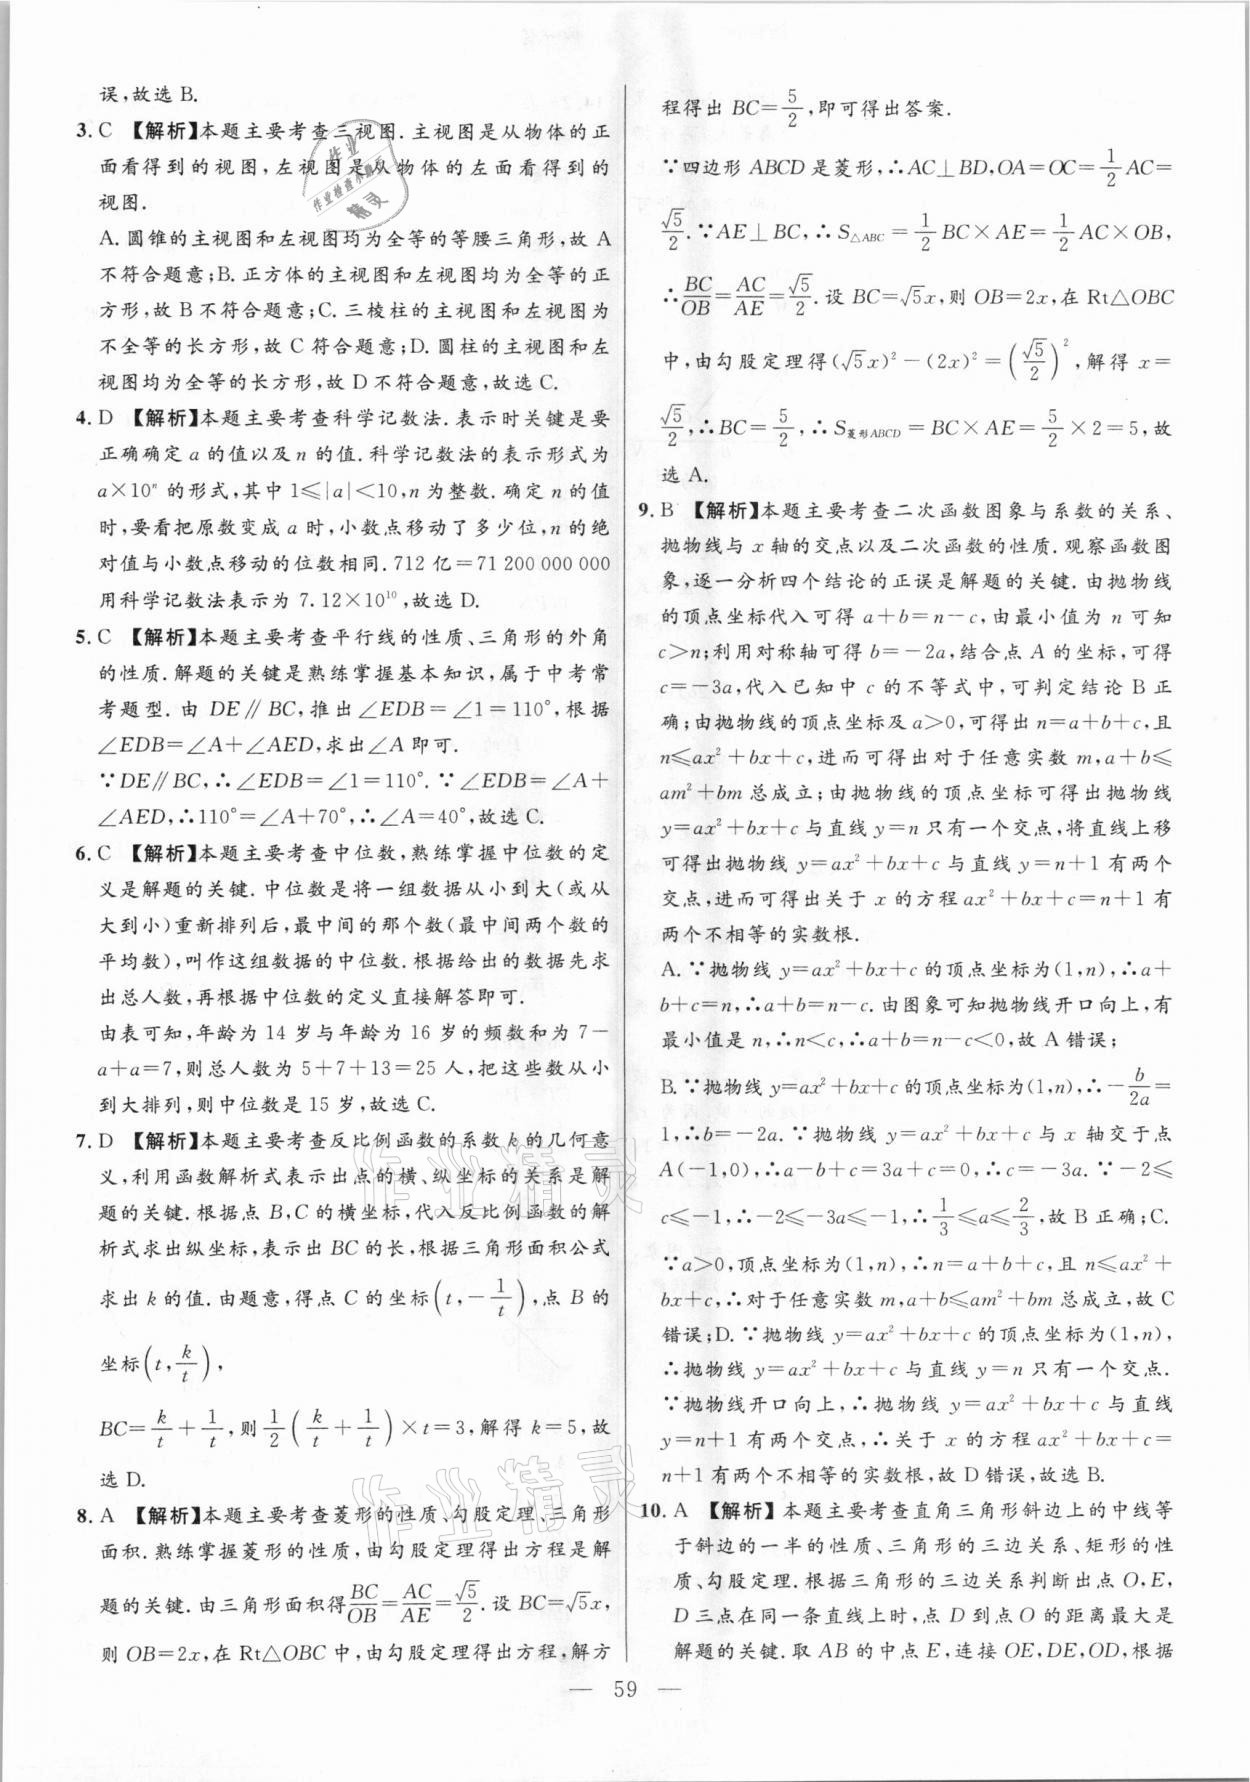 误,故选 B.
3. C 【解析】本题主要考查三视图.主视图是从物体的正
面看得到的视图,左视图是从物体的左面看得到的
视图.
A.圆锥的主视图和左视图均为全等的等腰三角形,故 A
不符合题意;B.正方体的主视图和左视图均为全等的正
方形,故 B 不符合题意;C.三棱柱的主视图和左视图为
不全等的长方形,故 C 符合题意;D.圆柱的主视图和左
视图均为全等的长方形,故 D 不符合题意,故选 C.
4. D 【解析】本题主要考查科学记数法.表示时关键是要
正确确定 a 的值以及 n 的值.科学记数法的表示形式为
a×10ⁿ 的形式,其中 1≤|a|<10,n 为整数.确定 n 的值
时,要看把原数变成 a 时,小数点移动了多少位,n 的绝
对值与小数点移动的位数相同.712 亿=71 200 000 000
用科学记数法表示为 7.12×10¹⁰,故选 D.
5. C 【解析】本题主要考查平行线的性质、三角形的外角
的性质.解题的关键是熟练掌握基本知识,属于中考常
考题型.由 DE∥BC,推出∠EDB=∠1=110°,根据
∠EDB=∠A+∠AED,求出∠A 即可.
∵DE∥BC,∴∠EDB=∠1=110°.∵∠EDB=∠A+
∠AED,∴110°=∠A+70°,∴∠A=40°,故选 C.
6. C 【解析】本题主要考查中位数,熟练掌握中位数的定
义是解题的关键.中位数是将一组数据从小到大(或从
大到小)重新排列后,最中间的那个数(最中间两个数的
平均数),叫作这组数据的中位数.根据给出的数据先求
出总人数,再根据中位数的定义直接解答即可.
由表可知,年龄为 14 岁与年龄为 16 岁的频数和为 7−
a+a=7,则总人数为 5+7+13=25 人,把这些数从小
到大排列,则中位数是 15 岁,故选 C.
7. D 【解析】本题主要考查反比例函数的系数 k 的几何意
义,利用函数解析式表示出点的横、纵坐标的关系是解
题的关键.根据点 B,C 的横坐标,代入反比例函数的解
析式求出纵坐标,表示出 BC 的长,根据三角形面积公式
求出 k 的值.由题意,得点 C 的坐标(t,−1/t),点 B 的
坐标(t,k/t),
BC=k/t+1/t,则 1/2(k/t+1/t)×t=3,解得 k=5,故
选 D.
8. A 【解析】本题主要考查菱形的性质、勾股定理、三角形
面积.熟练掌握菱形的性质,由勾股定理得出方程是解
题的关键.由三角形面积得BC/OB=AC/AE=√5/2.设 BC=√5x,
则 OB=2x,在 Rt△OBC 中,由勾股定理得出方程,解方
程得出 BC=5/2,即可得出答案.
∵四边形 ABCD 是菱形,∴AC⊥BD,OA=OC=1/2AC=
√5/2.∵AE⊥BC,∴S△ABC=1/2BC×AE=1/2AC×OB,
∴BC/OB=AC/AE=√5/2.设 BC=√5x,则 OB=2x,在 Rt△OBC
中,由勾股定理得(√5x)²−(2x)²=(√5/2)²,解得 x=
√5/2,∴BC=5/2,∴S菱形ABCD=BC×AE=5/2×2=5,故
选 A.
9. B 【解析】本题主要考查二次函数图象与系数的关系、
抛物线与 x 轴的交点以及二次函数的性质.观察函数图
象,逐一分析四个结论的正误是解题的关键.由抛物线
的顶点坐标代入可得 a+b=n−c,由最小值为 n 可知
c>n;利用对称轴可得 b=−2a,结合点 A 的坐标,可得
c=−3a,代入已知中 c 的不等式中,可判定结论 B 正
确;由抛物线的顶点坐标及 a>0,可得出 n=a+b+c,且
n≤ax²+bx+c,进而可得出对于任意实数 m,a+b≤
am²+bm 总成立;由抛物线的顶点坐标可得出抛物线
y=ax²+bx+c 与直线 y=n 只有一个交点,将直线上移
可得出抛物线 y=ax²+bx+c 与直线 y=n+1 有两个
交点,进而可得出关于 x 的方程 ax²+bx+c=n+1 有
两个不相等的实数根.
A.∵抛物线 y=ax²+bx+c 的顶点坐标为(1,n),∴a+
b+c=n,∴a+b=n−c.由图象可知抛物线开口向上,有
最小值是 n,∴n<c,∴a+b=n−c<0,故 A 错误;
B.∵抛物线 y=ax²+bx+c 的顶点坐标为(1,n),∴−b/2a=
1,∴b=−2a.∵抛物线 y=ax²+bx+c 与 x 轴交于点
A(−1,0),∴a−b+c=3a+c=0,∴c=−3a.∵−2≤
c≤−1,∴−2≤−3a≤−1,∴1/3≤a≤2/3,故 B 正确;C.
∵a>0,顶点坐标为(1,n),∴n=a+b+c,且 n≤ax²+
bx+c,∴对于任意实数 m,a+b≤am²+bm 总成立,故 C
错误;D.∵抛物线 y=ax²+bx+c 的顶点坐标为(1,n),
∴抛物线 y=ax²+bx+c 与直线 y=n 只有一个交点.
∵抛物线开口向上,∴抛物线 y=ax²+bx+c 与直线
y=n+1 有两个交点,∴关于 x 的方程 ax²+bx+c=
n+1 有两个不相等的实数根,故 D 错误,故选 B.
10. A 【解析】本题主要考查直角三角形斜边上的中线等
于斜边的一半的性质、三角形的三边关系、矩形的性
质、勾股定理.根据三角形的三边关系判断出点 O,E,
D 三点在同一条直线上时,点 D 到点 O 的距离最大是
解题的关键.取 AB 的中点 E,连接 OE,DE,OD,根据
— 59 —
作业
作业检查小助手
精灵
作业精灵
作业精灵